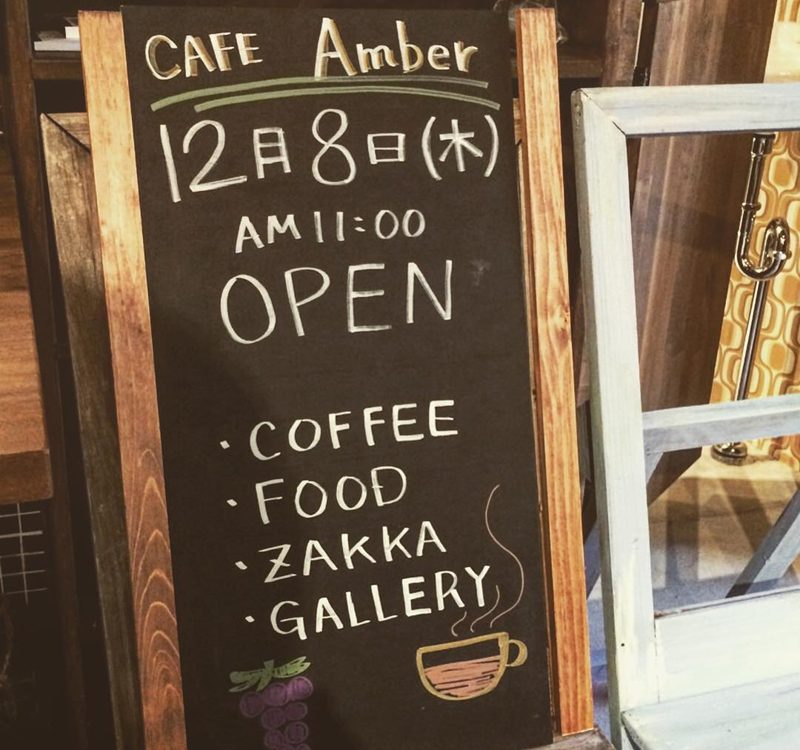 CAFE Amber
12月8日(木)
AM 11:00
OPEN
・COFFEE
・FOOD
・ZAKKA
・GALLERY